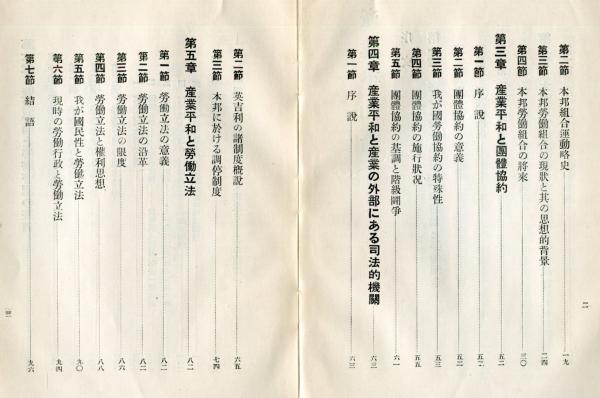 第二節 本邦組合運動略史 一九
第三節 本邦勞働組合の現狀と其の思想的背景 二四
第四節 本邦勞働組合の將來 三〇
第三章 產業平和と團體協約 五二
第一節 序說 五二
第二節 團體協約の意義 五二
第三節 我が國勞働協約の特殊性 五三
第四節 團體協約の施行狀況 五五
第五節 團體協約の基調と階級鬪爭 六一
第四章 產業平和と產業の外部にある司法的機關 六三
第一節 序說 六三
二
第二節 英吉利の諸制度槪說 六五
第三節 本邦に於ける調停制度 七四
第五章 產業平和と勞働立法 八二
第一節 勞働立法の意義 八二
第二節 勞働立法の沿革 八二
第三節 勞働立法の限度 八六
第四節 勞働立法と權利思想 八八
第五節 我が國民性と勞働立法 九〇
第六節 現時の勞働行政と勞働立法 九四
第七節 結語 九六
三